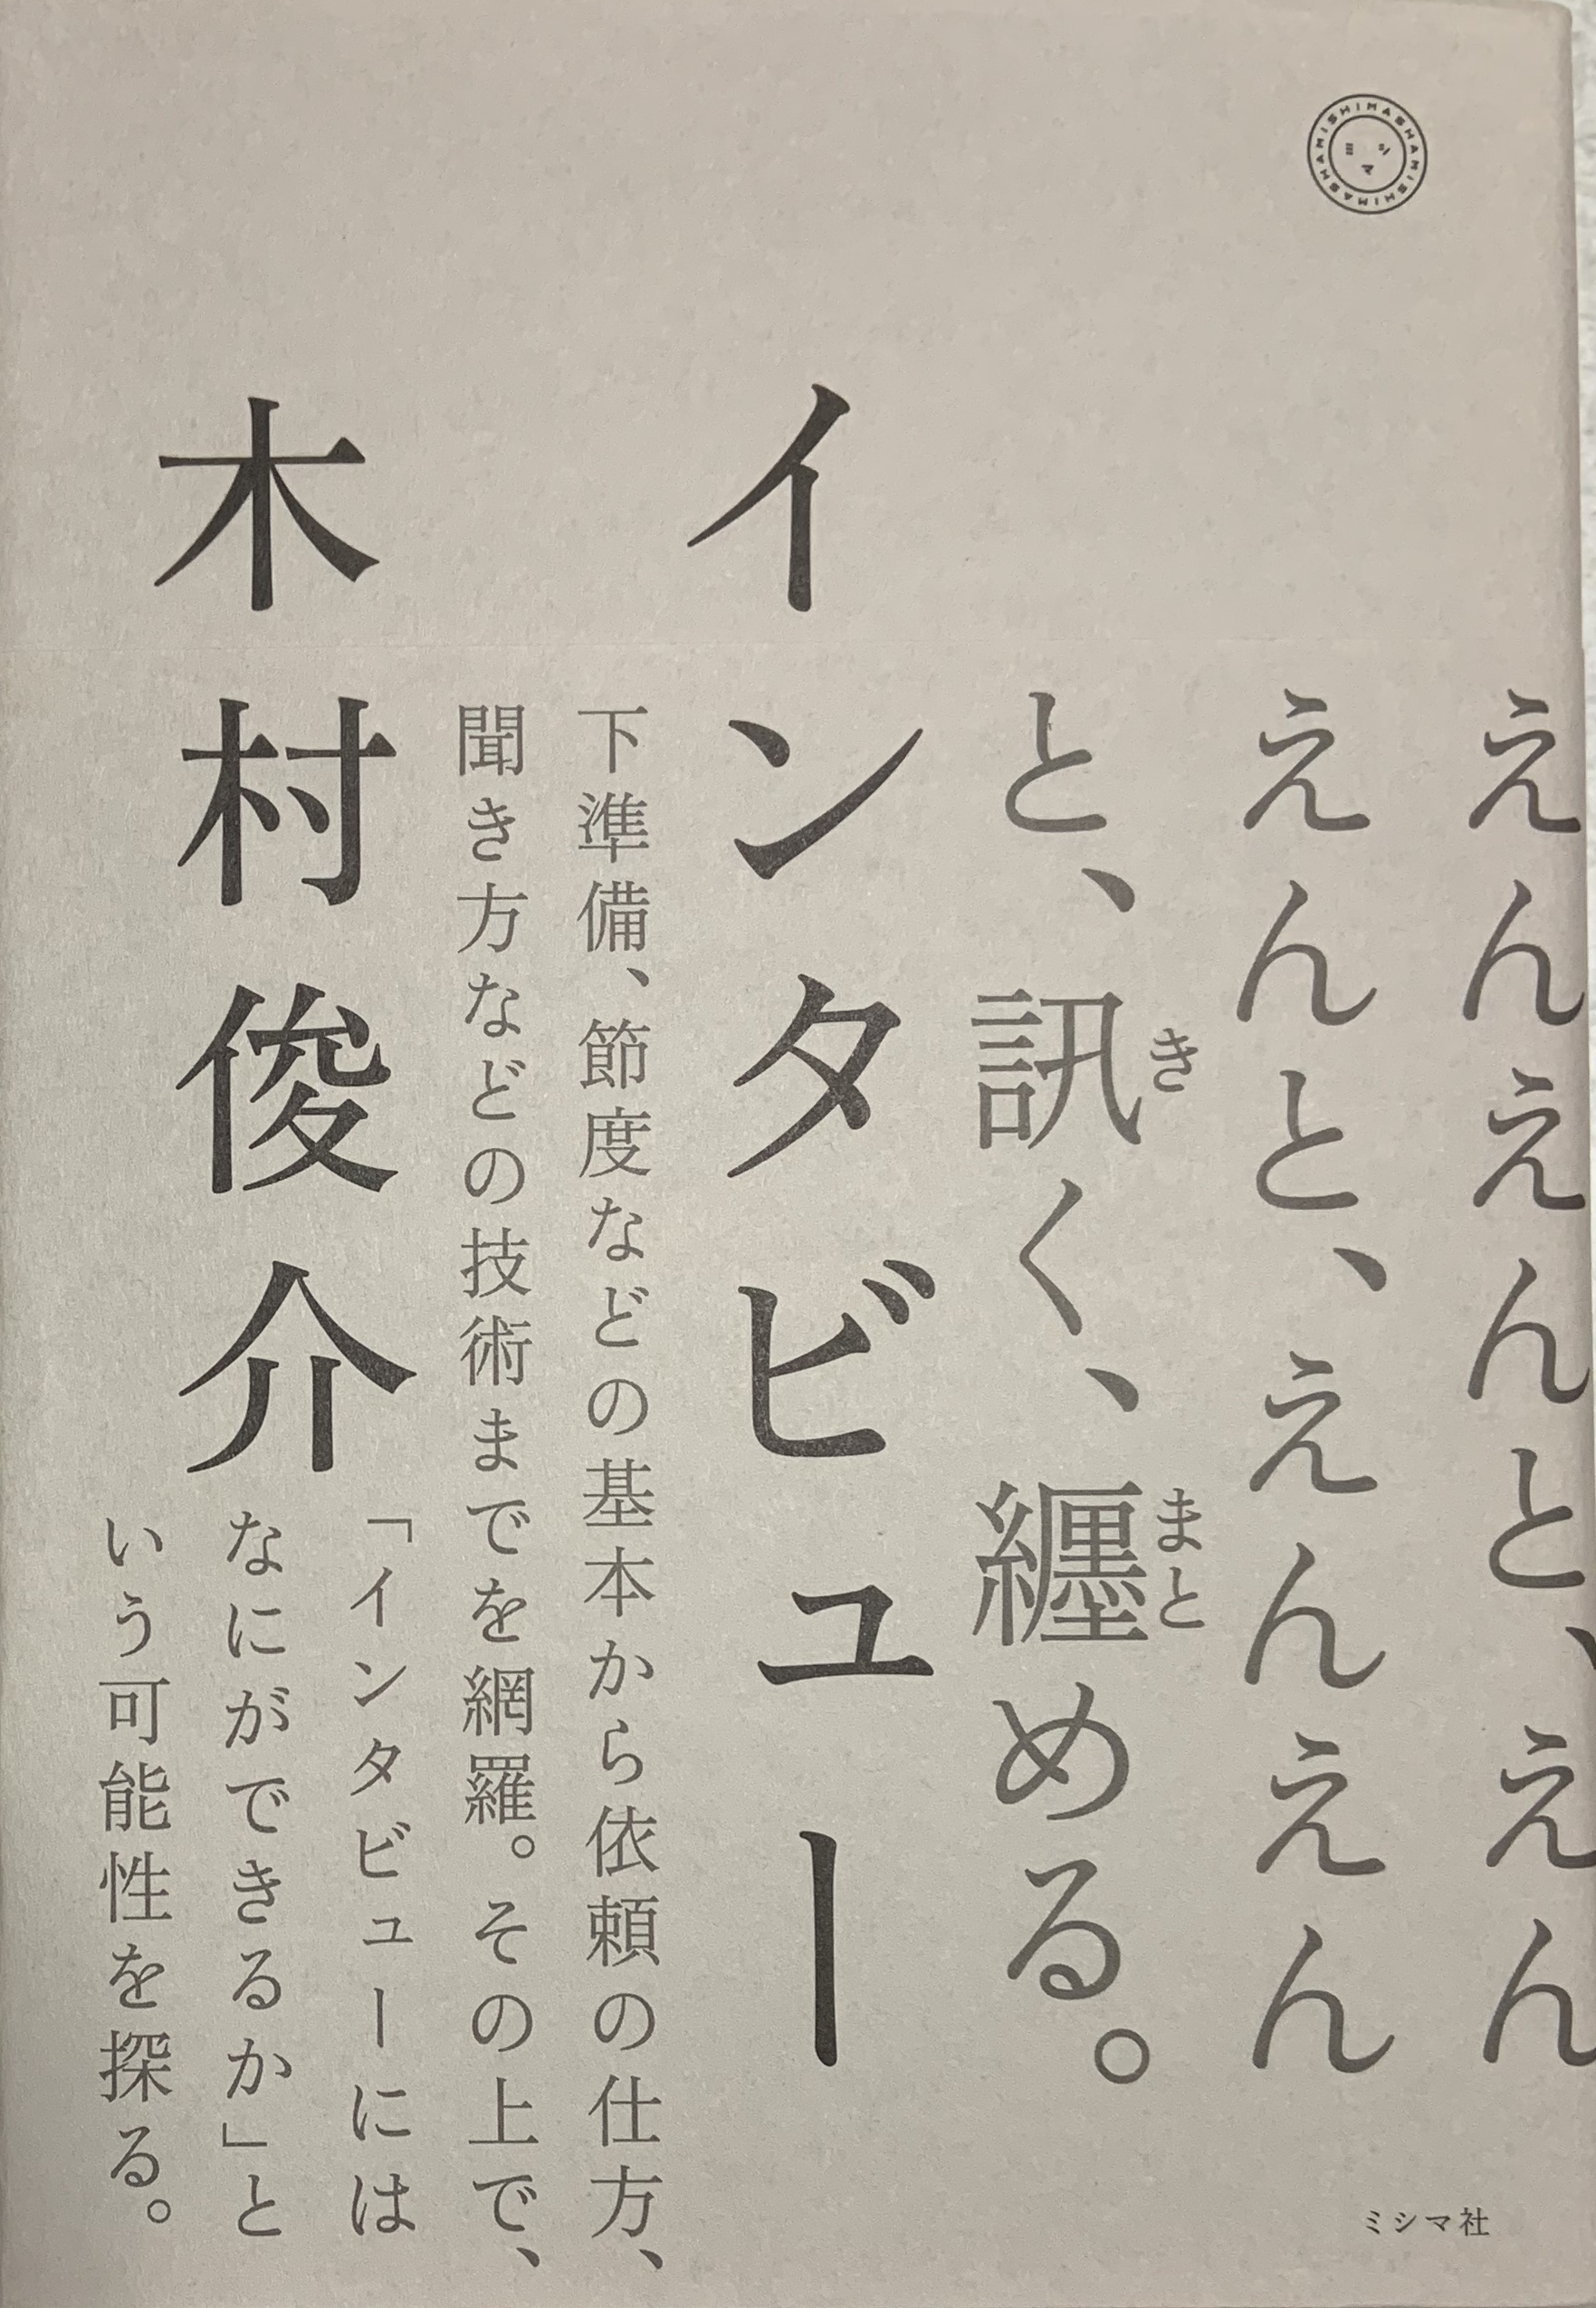 MISHIMASHAMISHIMASHAMISHIMASHA
ミシマ
えんえんと、えん
えんと、えんえん
と、訊く、纏める。
き
まと
インタビュー
下準備、節度などの基本から依頼の仕方、
聞き方などの技術までを網羅。その上で、
「インタビューには
なにができるか」と
いう可能性を探る。
木村俊介
ミシマ社